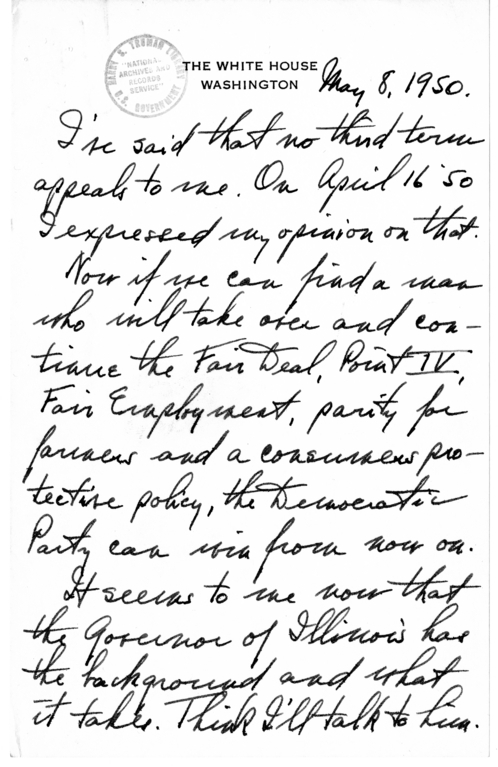 HARRY S. TRUMAN LIBRARY
"NATIONAL
ARCHIVES AND
RECORDS
SERVICE"
U.S. GOVERNMENT
THE WHITE HOUSE
WASHINGTON
May 8, 1950.
I've said that no third term
appeals to me. On April 16 '50
I expressed my opinion on that.
Now if we can find a man
who will take over and con-
tinue the Fair Deal, Point IV,
Fair Employment, parity for
farmers and a consumers pro-
tective policy, the Democratic
Party can win from now on.
It seems to me now that
the Governor of Illinois has
the background and what
it takes. Think I'll talk to him.